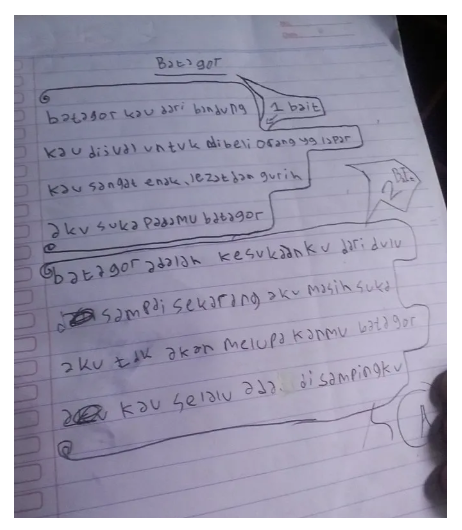 Batagor
batagor kau dari bandung
1 bait
kau dijual untuk dibeli orang yg lapar
kau sangat enak, lezat dan gurih
aku suka padamu batagor
2
batagor adalah kesukaanku dari dulu
sampai sekarang aku masih suka
aku tak akan melupakanmu batagor
kau selalu ada. disampingku